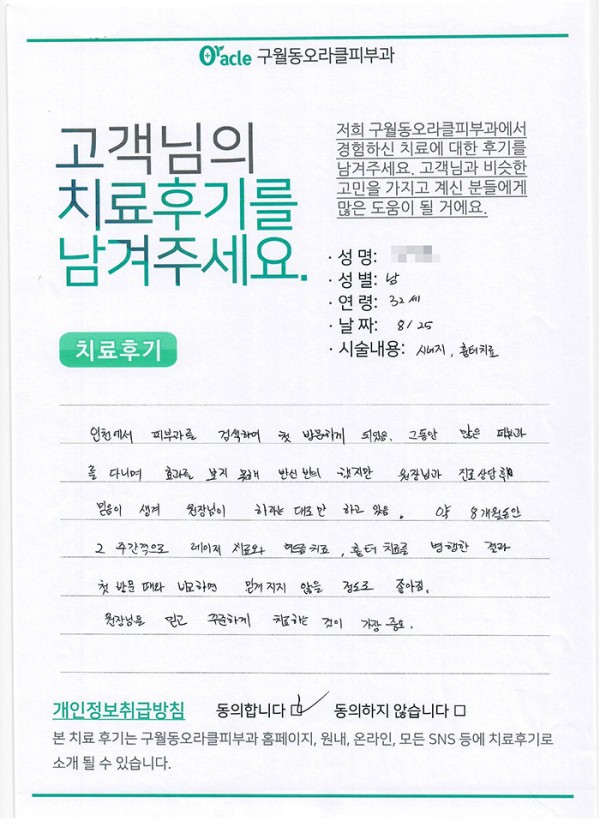 Oracle 구월동오라클피부과
고객님의
치료후기를
남겨주세요.
저희 구월동오라클피부과에서
경험하신 치료에 대한 후기를
남겨주세요. 고객님과 비슷한
고민을 가지고 계신 분들에게
많은 도움이 될 거에요.
· 성 명:
· 성 별: 남
· 연 령: 32세
· 날 짜: 8/25
· 시술내용: 시너지, 흉터치료
치료후기
인천에서 피부과를 검색하여 첫 방문하게 되었음. 그동안 많은 피부과
를 다니며 효과를 보지 못해 반신반의 했지만 원장님과 진료상담 후
믿음이 생겨 원장님이 하라는 대로만 하고 있음. 약 8개월동안
2주간격으로 레이저 치료와 연고치료, 흉터치료를 병행한 결과
첫 방문 때와 비교하면 믿겨지지 않을 정도로 좋아짐.
원장님을 믿고 꾸준하게 치료하는 것이 가장 중요.
개인정보취급방침 동의합니다 동의하지 않습니다
본 치료 후기는 구월동오라클피부과 홈페이지, 원내, 온라인, 모든 SNS 등에 치료후기로
소개 될 수 있습니다.